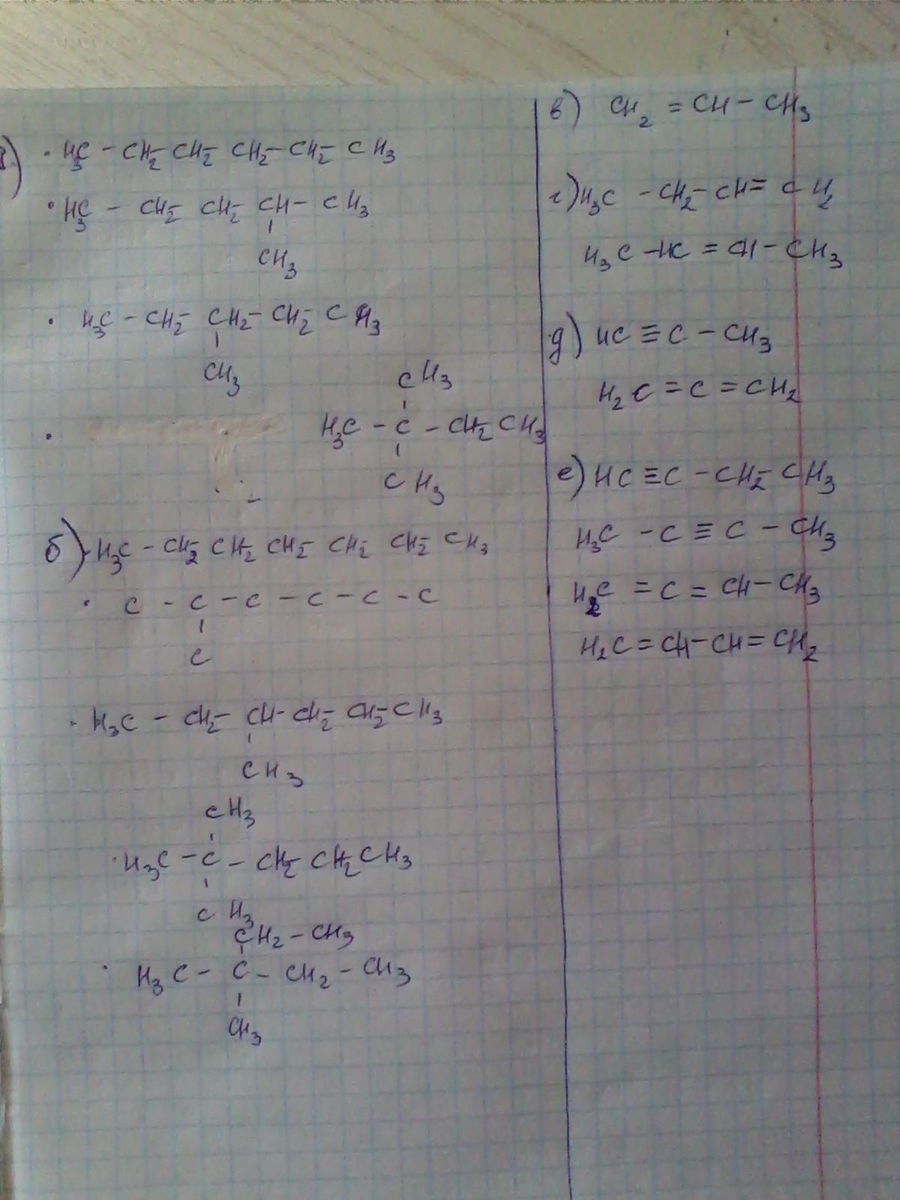 а) · H₃C - CH₂- CH₂- CH₂- CH₂- CH₃
· H₃C - CH₂- CH₂- CH - CH₃
CH₃
· H₃C - CH₂- CH₂- CH₂- CH₃
CH₃
CH₃
· H₃C - C - CH₂- CH₃
CH₃
б) · H₃C - CH₂- CH₂- CH₂- CH₂- CH₂- CH₃
· C - C - C - C - C - C
C
· H₃C - CH₂- CH- CH₂- CH₂- CH₃
CH₃
CH₃
· H₃C - C - CH₂- CH₂- CH₃
CH₃
CH₂ - CH₃
· H₃C - C - CH₂ - CH₃
CH₃
в) CH₂ = CH - CH₃
г) H₃C - CH₂- CH= CH₂
H₃C - HC = CH - CH₃
д) HC ≡ C - CH₃
H₂C = C = CH₂
е) HC ≡ C - CH₂- CH₃
H₃C - C ≡ C - CH₃
H₂C = C = CH - CH₃
H₂C = CH - CH = CH₂